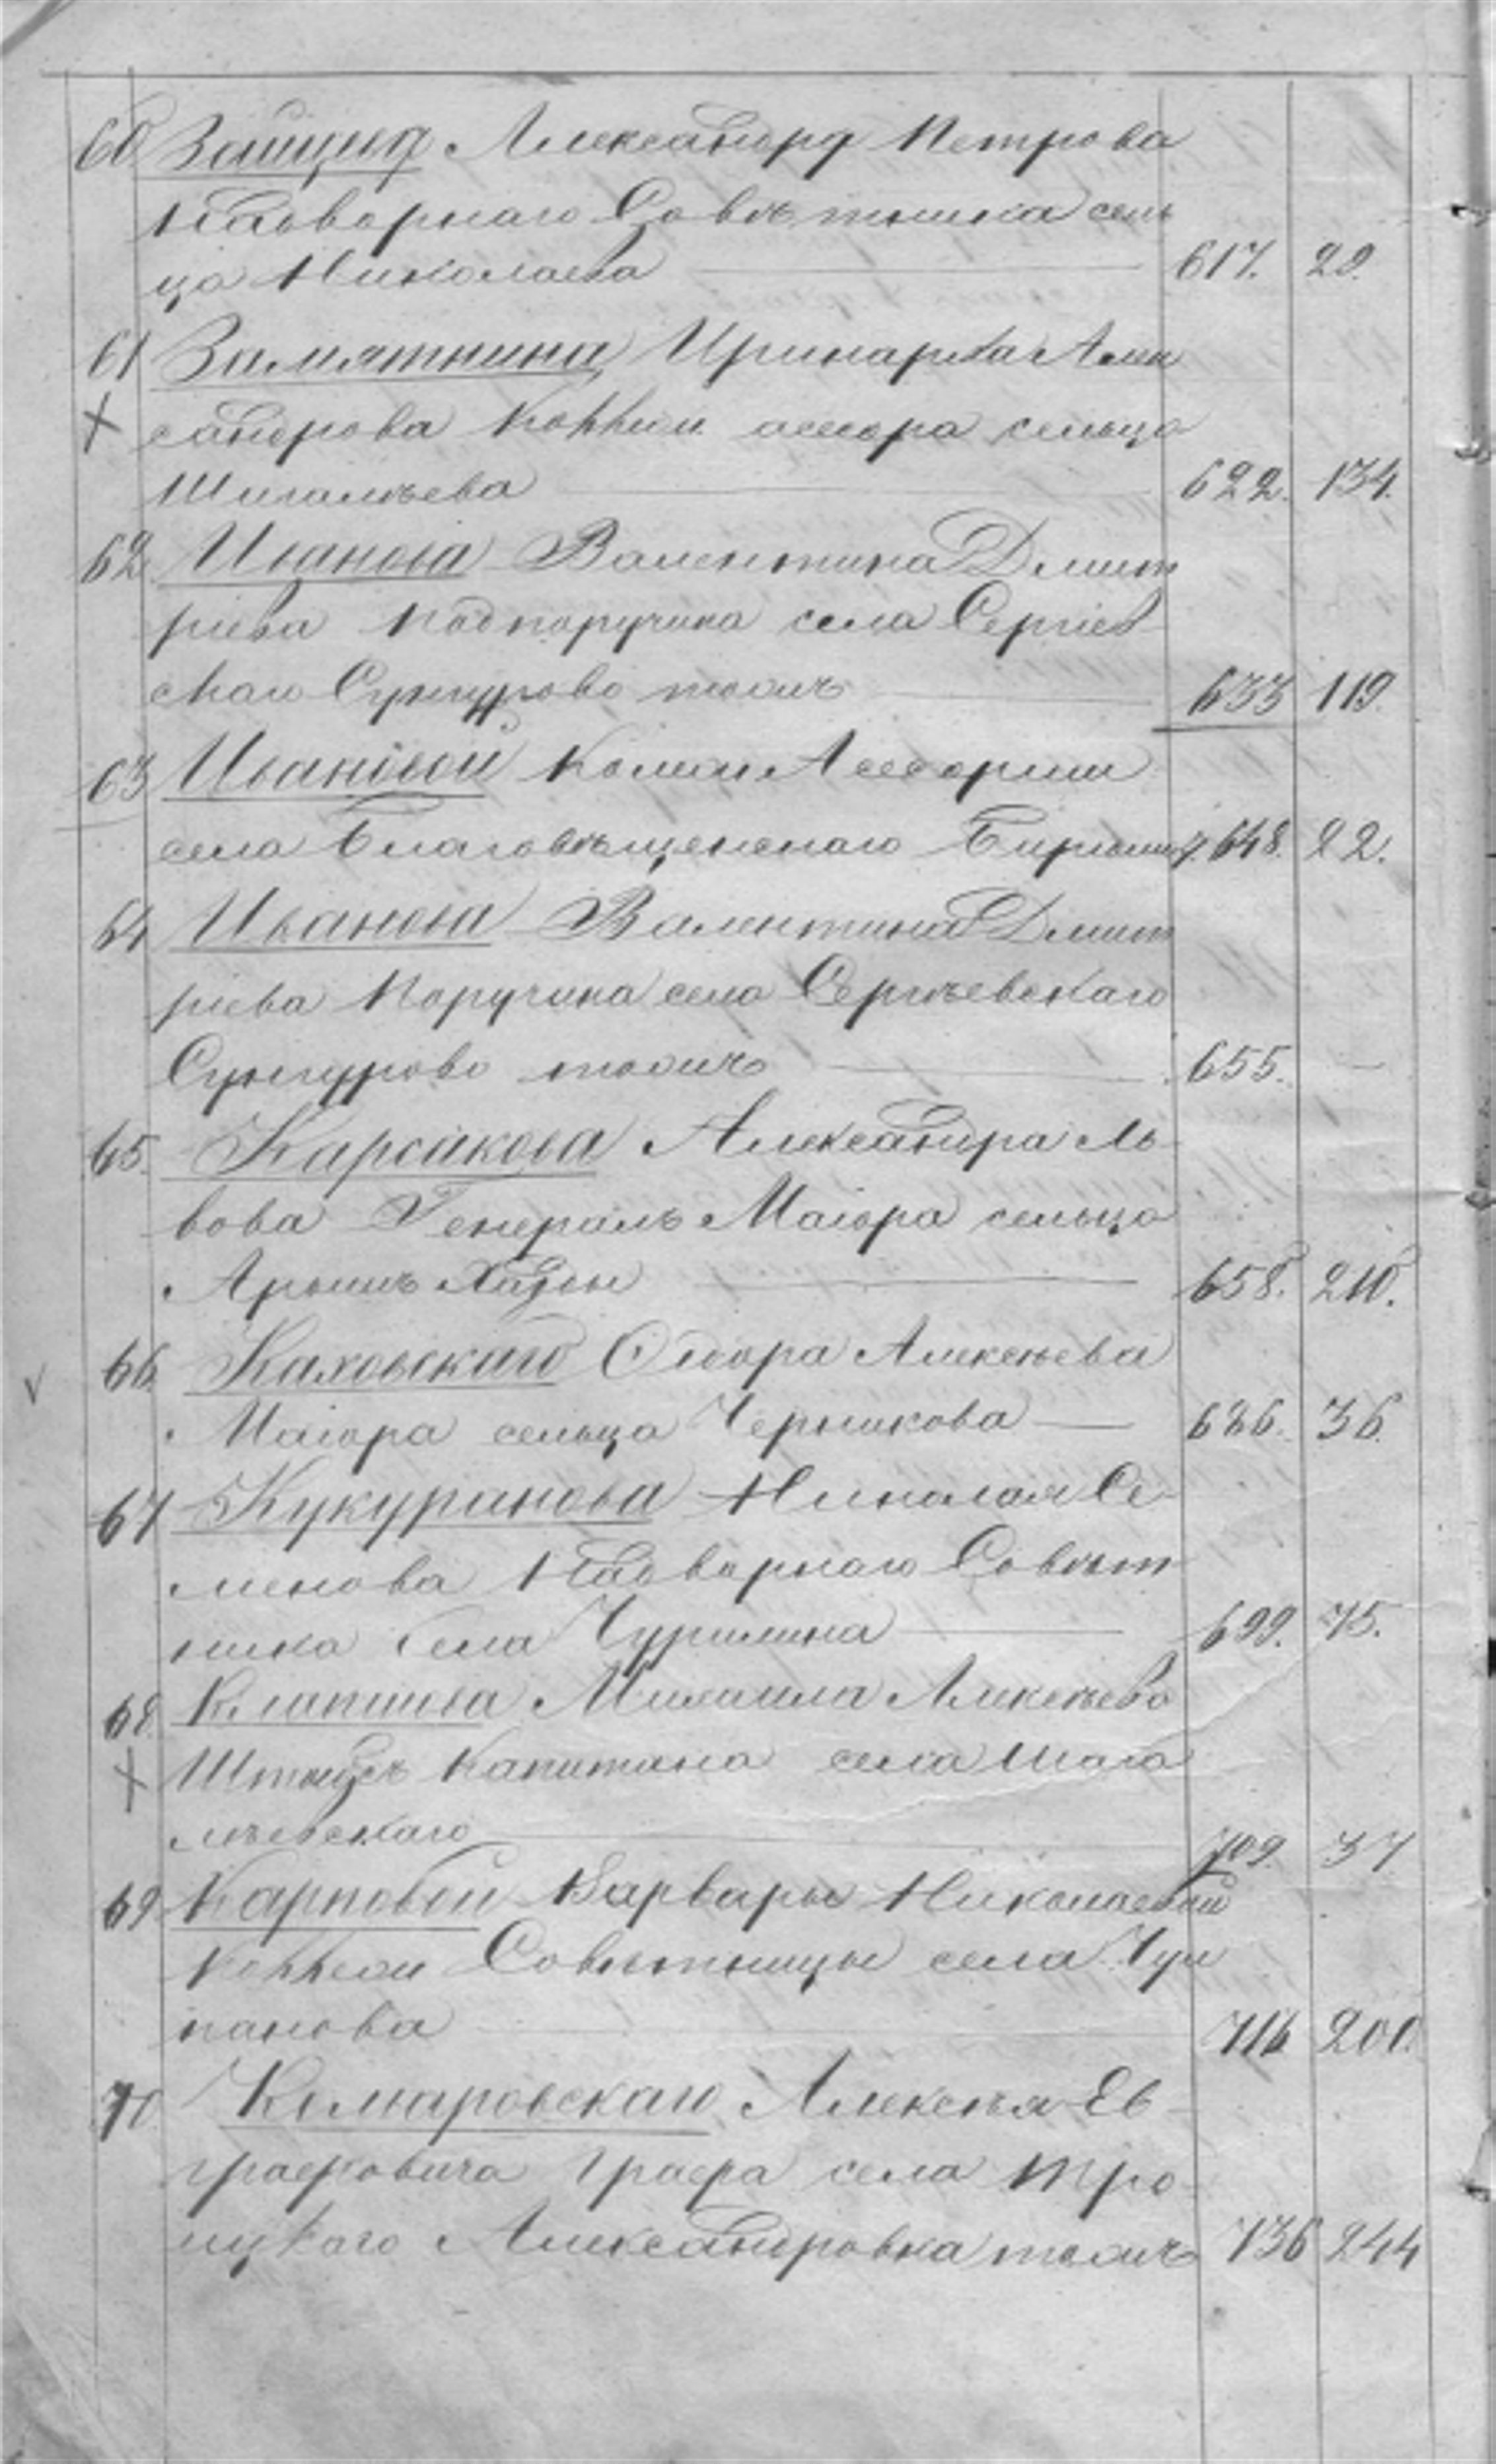 60 Зайцид Александрд Петрова
Надворнаго Совѣтника сель
ца Николаева 617. 29.
61 Замятнина Иринарха Алек
сандрова Коллеж. ассесора сельца
Шигалѣева 622. 134.
62 Иванова Валентина Дмит
ріева Подпоручика села Сергіев
скаго Сунгурово тожъ 633 119.
63 Ивановой Колеж Асесорши
села Благовѣщенскаго 648. 22.
64 Иванова Валентина Дмит
ріева Поручика села Сергѣевскаго
Сунгурово тожъ 655. —
65. Карсакова Александра Ль
вова Генералъ Маіора сельца
658. 210.
66 Каховскаго Ѳедора Алексѣева
Маіора сельца Черникова 686. 36.
67 Кукуранова Николая Се
менова Надворнаго Совѣт
ника села Чурилина 699. 75.
68. Михаила Алексѣева
Штабсъ Капитана села Шига
лѣевскаго 709. 37
69 Карповой Варвары Николаевой
Коллежи Совѣтницы села Чул
панова 716 200.
70 Комаровскаго Алексѣя Ев
графовича Графа села Тро
ицкаго Александровка тожъ 736 244